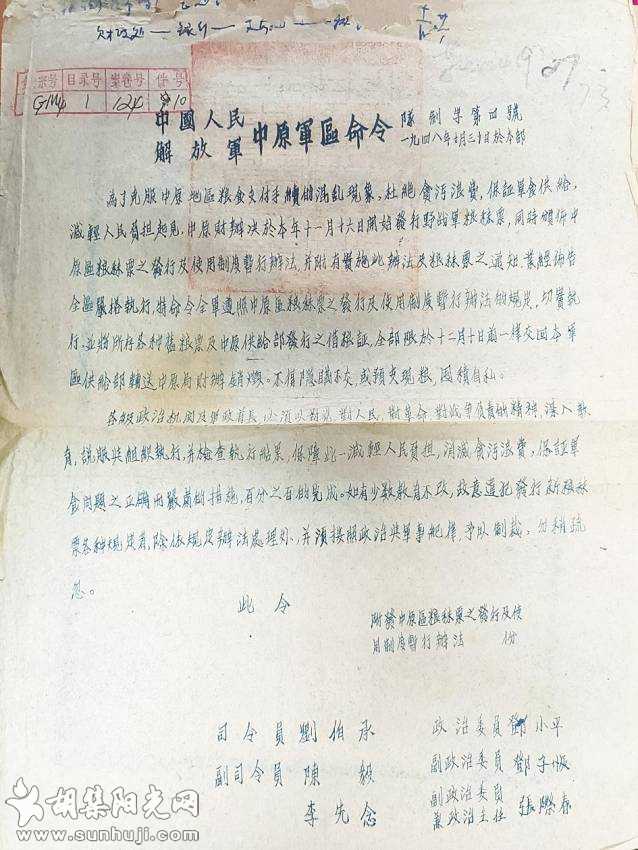 全宗号 目录号 案卷号 件号
1 124 10
中國人民
解放軍 中原軍區命令
隊制字第四號
一九四八年十月三十日於本部
為了克服中原地區粮食支付手續的混乱現象，杜絕貪污浪費，保証軍食供給，
減輕人民負担起見，中原財辦决於本年十一月十六日開始發行野战軍粮秣票，同時頒佈中
原區粮秣票之發行及使用制度暫行辦法，並附有實施此辦法及粮秣票之通知，業經佈告
全區嚴格執行，特命令全軍遵照中原區粮秣票之發行及使用制度暫行辦法的規定，切實執
行，並將所存各种舊粮票及中原供給部發行之借粮証，全部限於十二月十日前一律交回本軍
區供給部轉送中原局財辦銷燬。不得隱瞞不交，或預支現粮，囤積自私。
各級政治机関及軍政首長，必須以對党，對人民，對革命，對战争負責的精神，深入教
育，說服與組織執行，并檢查執行結果，保障此一減輕人民負担，消滅貪污浪費，保証軍
食問題之正确而嚴肅的措施，百分之百的完成。如有少数教育不改，故意違犯發行新粮秣
票各种規定者，除依規定辦法處理外，并須按照政治與軍事紀律，予以制裁，勿稍疏
忽。
此令
附發中原區粮秣票之發行及使
用制度暫行辦法 份
司令員 劉伯承 政治委員 鄧小平
副司令員 陳毅 副政治委員 鄧子恢
李先念 副政治委員
兼政治主任 張際春
胡集阳光网
www.sunhuji.com